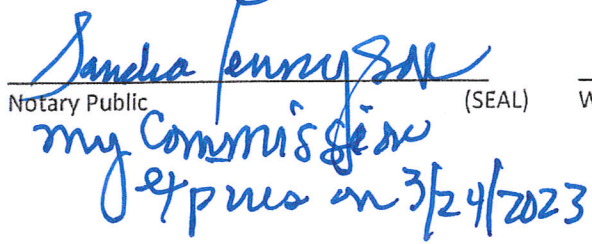 Sandra Tennyson
Notary Public (SEAL) W
my Commission
expires on 3/24/2023